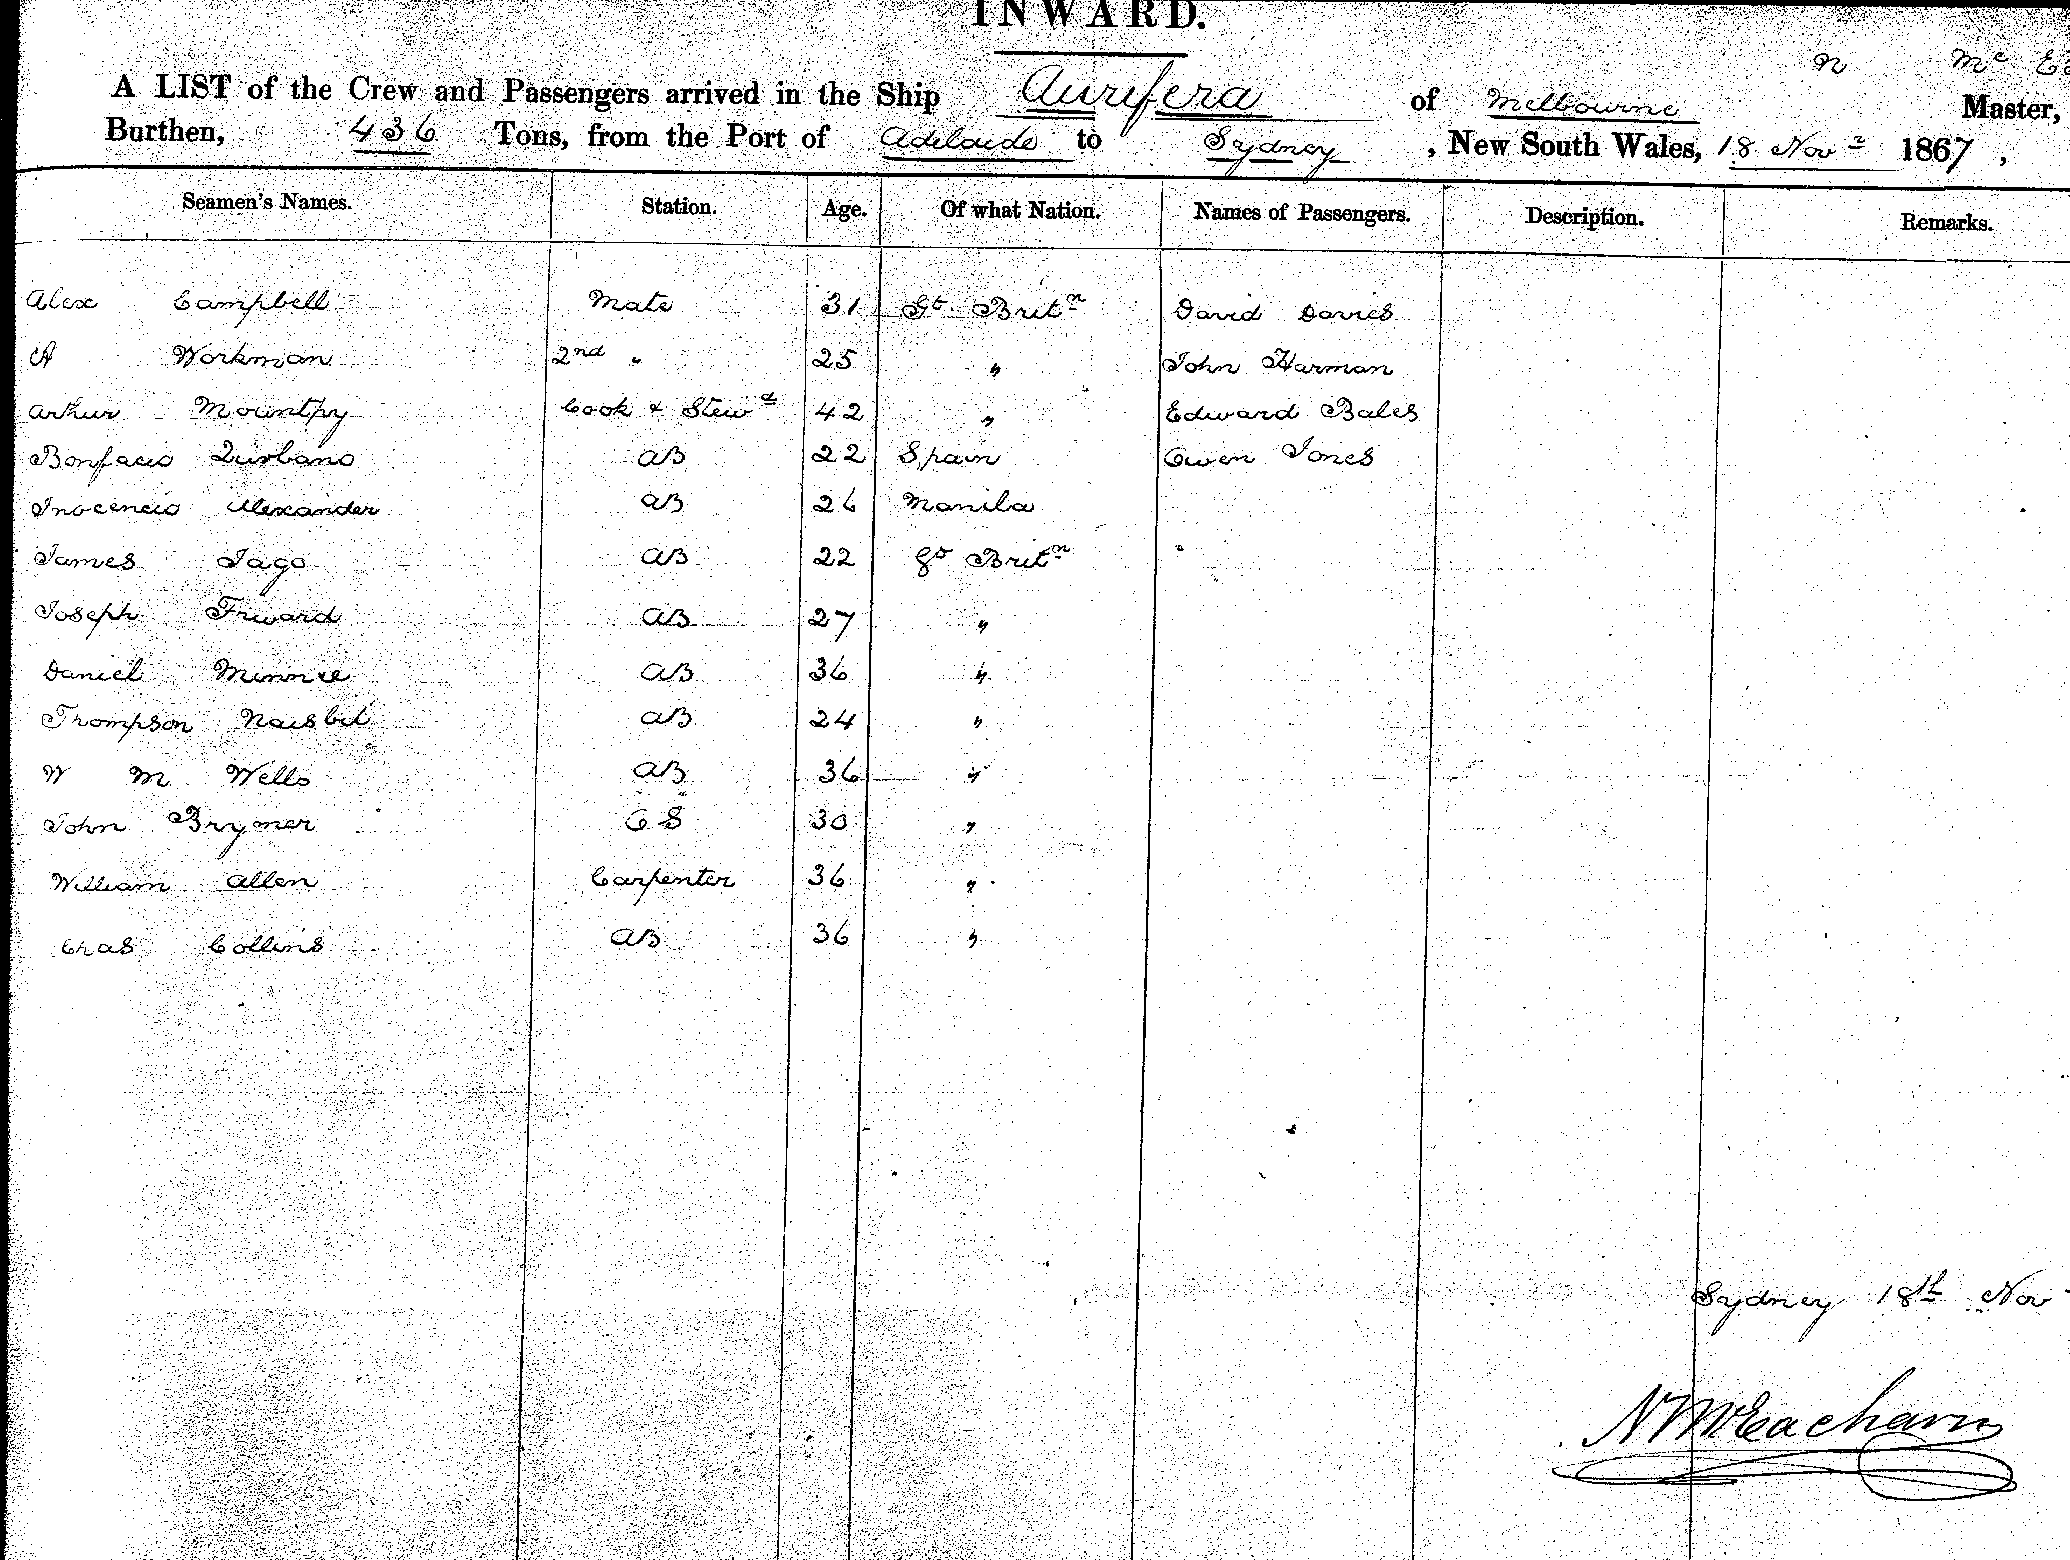 INWARD.
A LIST of the Crew and Passengers arrived in the Ship Aurifera of Melbourne N Mc Master,
Burthen, 436 Tons, from the Port of Adelaide to Sydney, New South Wales, 18 Nov 1867,
Seamen's Names. Station. Age. Of what Nation. Names of Passengers. Description. Remarks.
Alex Campbell Mate 31 Gt Britn David Davies
A Workman 2nd " 25 " John Harman
Arthur Mountpy Cook & Stewd 42 " Edward Bales
Bonfacio 22 Spain Owen Jones
Inocencio Alexander AB 26 Manila
James Jago AB 22 Gt Britn
Joseph AB 27 "
Daniel Minnie AB 36 "
Thompson Naisbit AB 24 "
W M Wells AB 36 "
John Brymer 30 "
William Allen Carpenter 36 "
Chas Collins AB 36 "
Sydney 18th Nov
N McEacharn